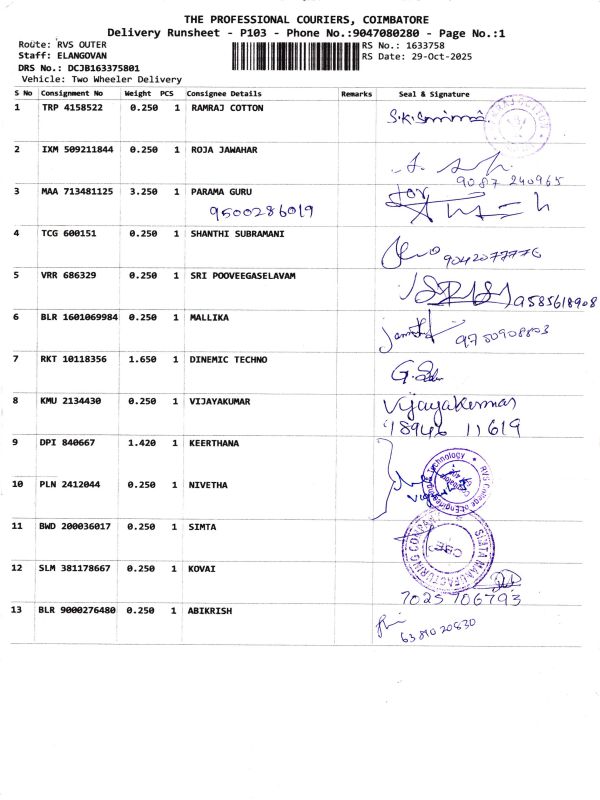 THE PROFESSIONAL COURIERS, COIMBATORE
Delivery Runsheet - P103 - Phone No.:9047080280 - Page No.:1
Route: RVS OUTER RS No.: 1633758
Staff: ELANGOVAN RS Date: 29-Oct-2025
DRS No.: DCJB163375801
Vehicle: Two Wheeler Delivery
S No Consignment No Weight PCS Consignee Details Remarks Seal & Signature
1 TRP 4158522 0.250 1 RAMRAJ COTTON
2 IXM 509211844 0.250 1 ROJA JAWAHAR
9087 240965
3 MAA 713481125 3.250 1 PARAMA GURU for
9500286019
4 TCG 600151 0.250 1 SHANTHI SUBRAMANI
9042077776
5 VRR 686329 0.250 1 SRI POOVEEGASELAVAM
9585618908
6 BLR 1601069984 0.250 1 MALLIKA
9750908803
7 RKT 10118356 1.650 1 DINEMIC TECHNO
8 KMU 2134430 0.250 1 VIJAYAKUMAR Vijayakumar
78946 11619
9 DPI 840667 1.420 1 KEERTHANA
RVS College of Engineering & Technology
Coimbatore
10 PLN 2412044 0.250 1 NIVETHA
11 BWD 200036017 0.250 1 SIMTA
SIMTA MANUFACTURING COMPANY
CBE
12 SLM 381178667 0.250 1 KOVAI
7025706793
13 BLR 9000276480 0.250 1 ABIKRISH